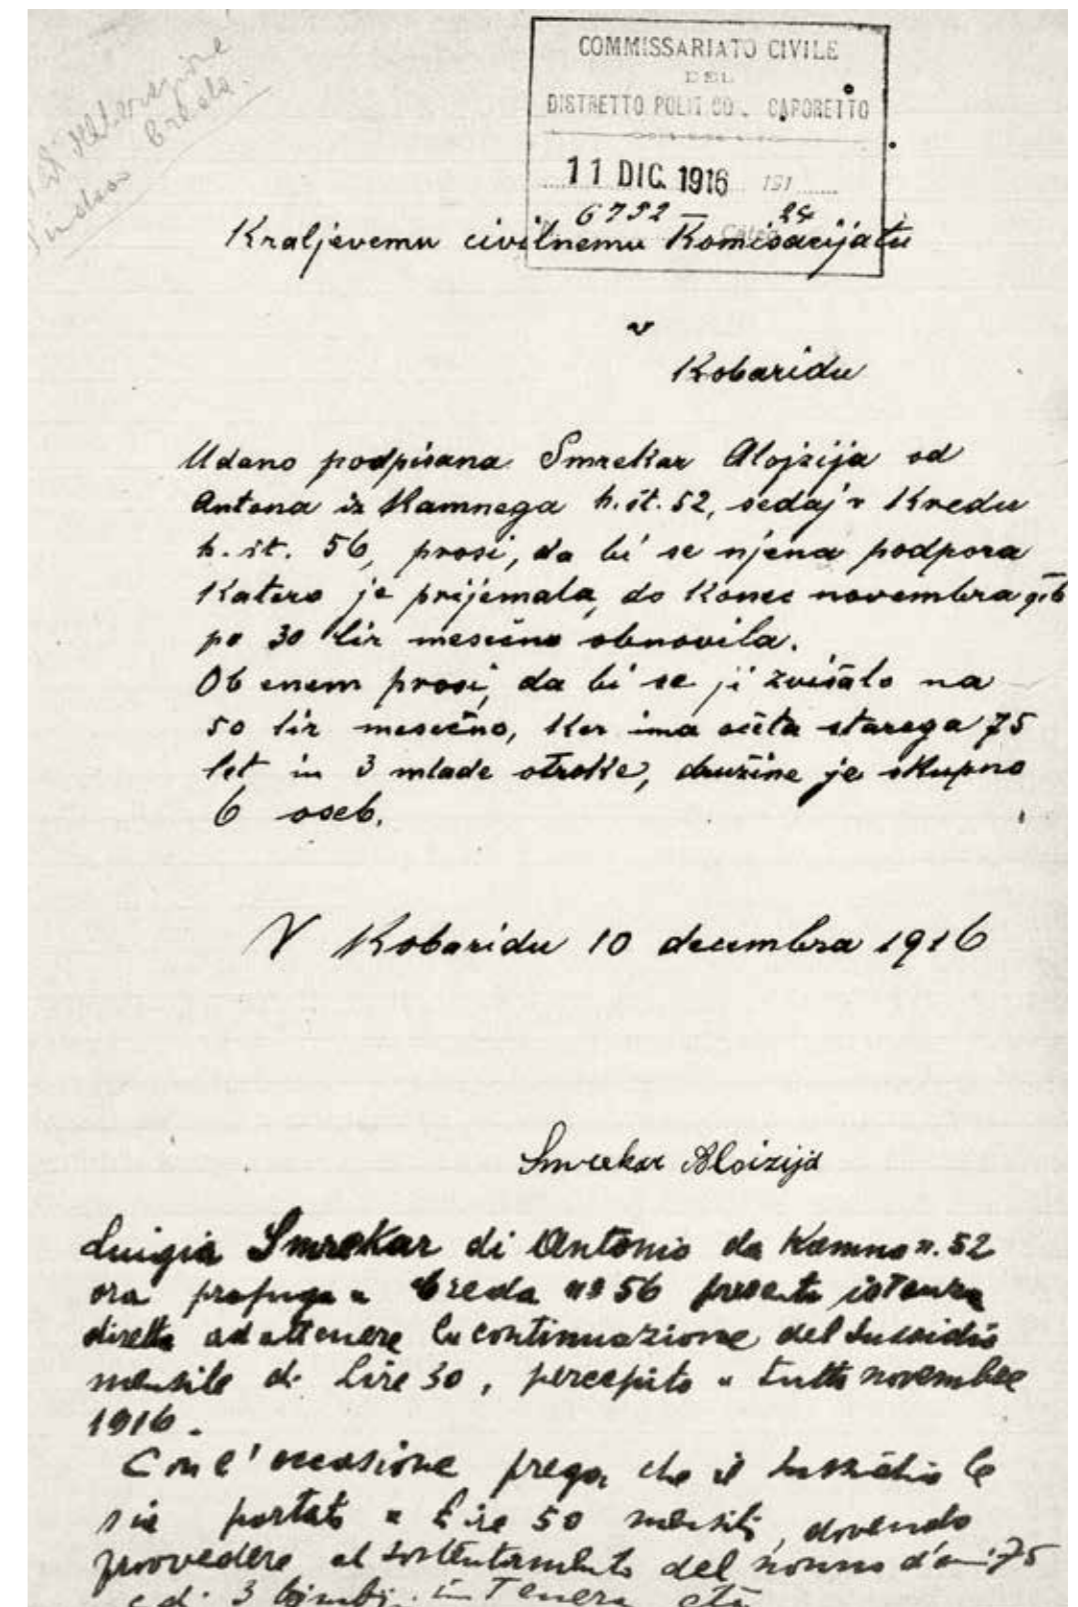 COMMISSARIATO CIVILE
DEL
DISTRETTO POLITICO . CAPORETTO
11 DIC. 1916 191
6792 24
Kraljevemu civilnemu Komisarijatu
v
Kobaridu
Udano podpisana Smrekar Alojzija od
Antona iz Kamnega h. št. 52, sedaj v Kredu
h. št. 56, prosi, da bi se njena podpora
katero je prijemala, do konec novembra
po 30 lir mesečno obnovila.
Ob enem prosi, da bi se ji zvišalo na
50 lir mesečno, ker ima očeta starega 75
let in 3 mlade otroke, družine je skupno
6 oseb.
V Kobaridu 10 decembra 1916
Smrekar Aloizija
Luigia Smrekar di Antonio da Kamno n. 52
ora profuga a Creda nº 56 presenta istanza
diretta ad ottenere la continuazione del sussidio
mensile di Lire 30, percepito a tutto novembre
1916.
Con l'occasione prega, che il sussidio le
sia portato a Lire 50 mensili, dovendo
provvedere al sostentamento del nonno d'anni 75
e di 3 bimbi in tenera età